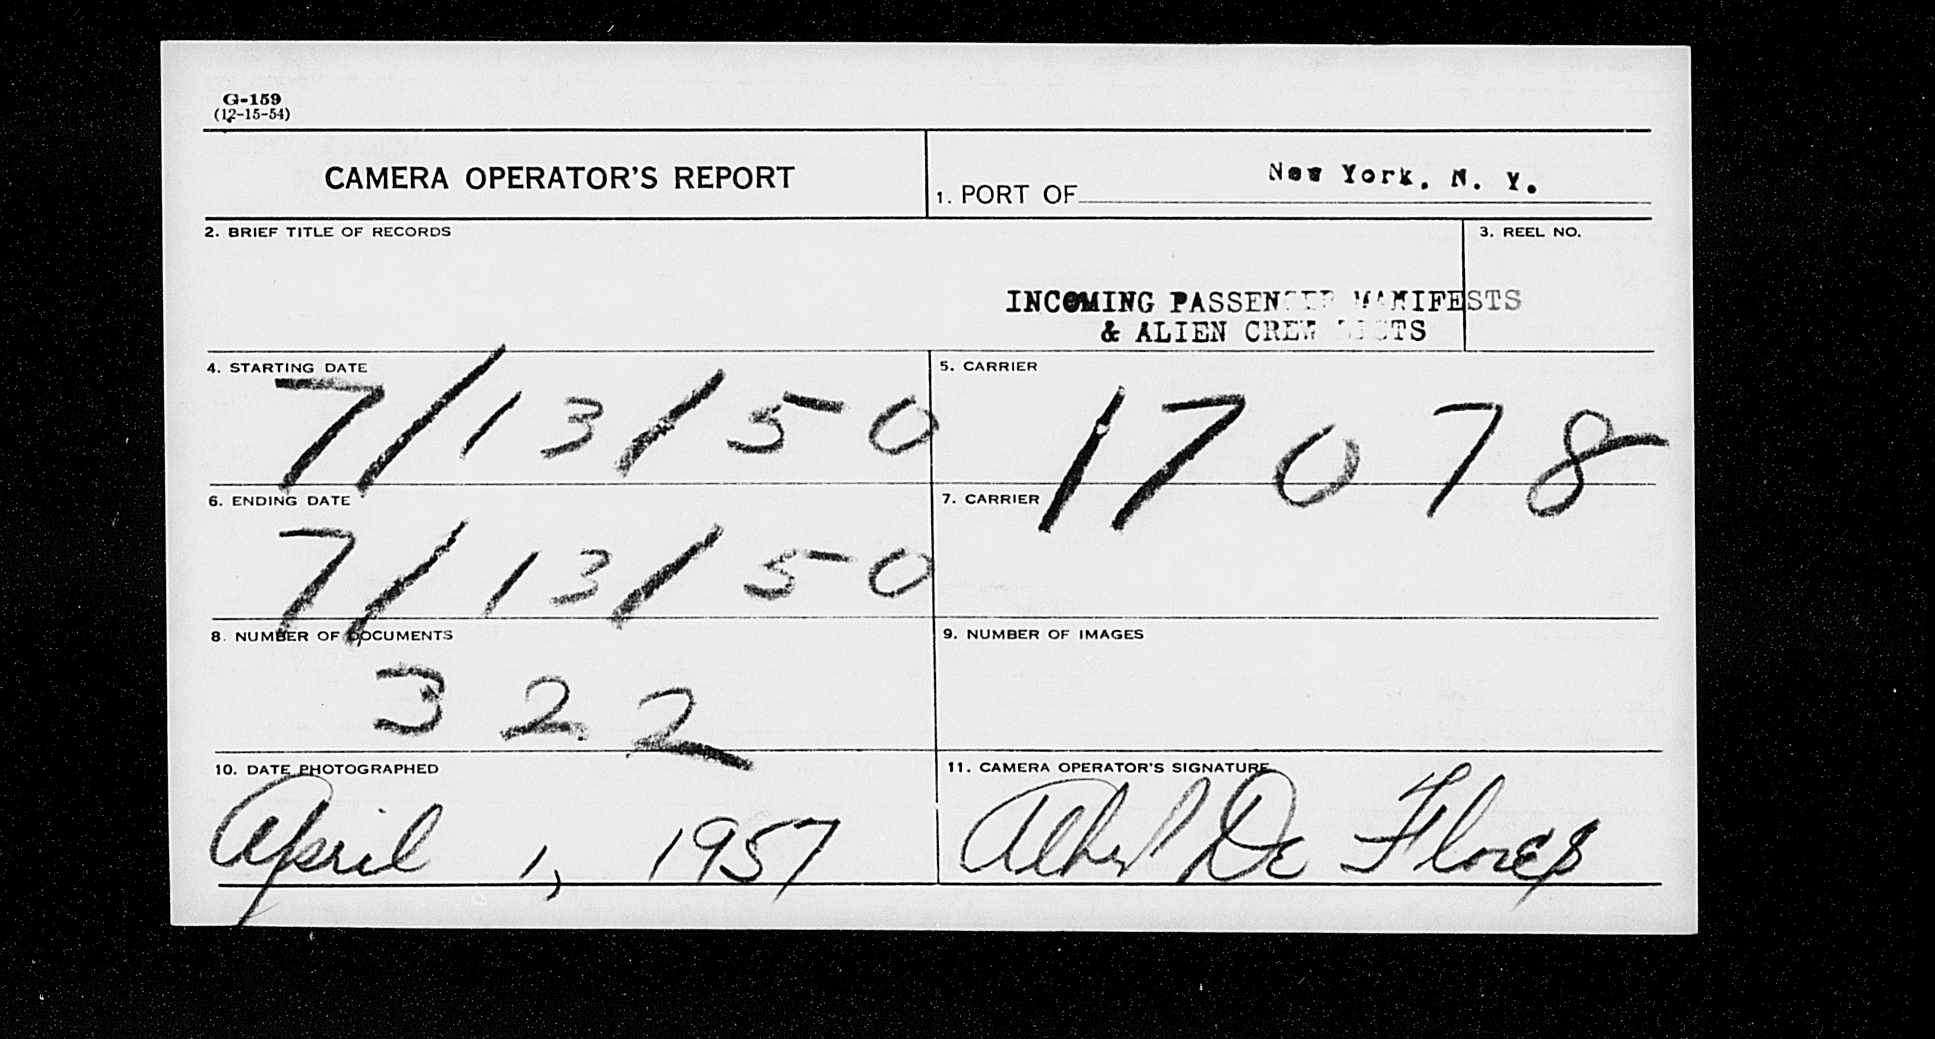 G-159
(12-15-54)
CAMERA OPERATOR'S REPORT
1. PORT OF New York, N. Y.
2. BRIEF TITLE OF RECORDS
3. REEL NO.
INCOMING PASSENGER MANIFESTS
& ALIEN CREW LISTS
4. STARTING DATE
7/13/50
5. CARRIER
17078
6. ENDING DATE
7/13/50
7. CARRIER
8. NUMBER OF DOCUMENTS
322
9. NUMBER OF IMAGES
10. DATE PHOTOGRAPHED
April 1, 1957
11. CAMERA OPERATOR'S SIGNATURE
De Flores